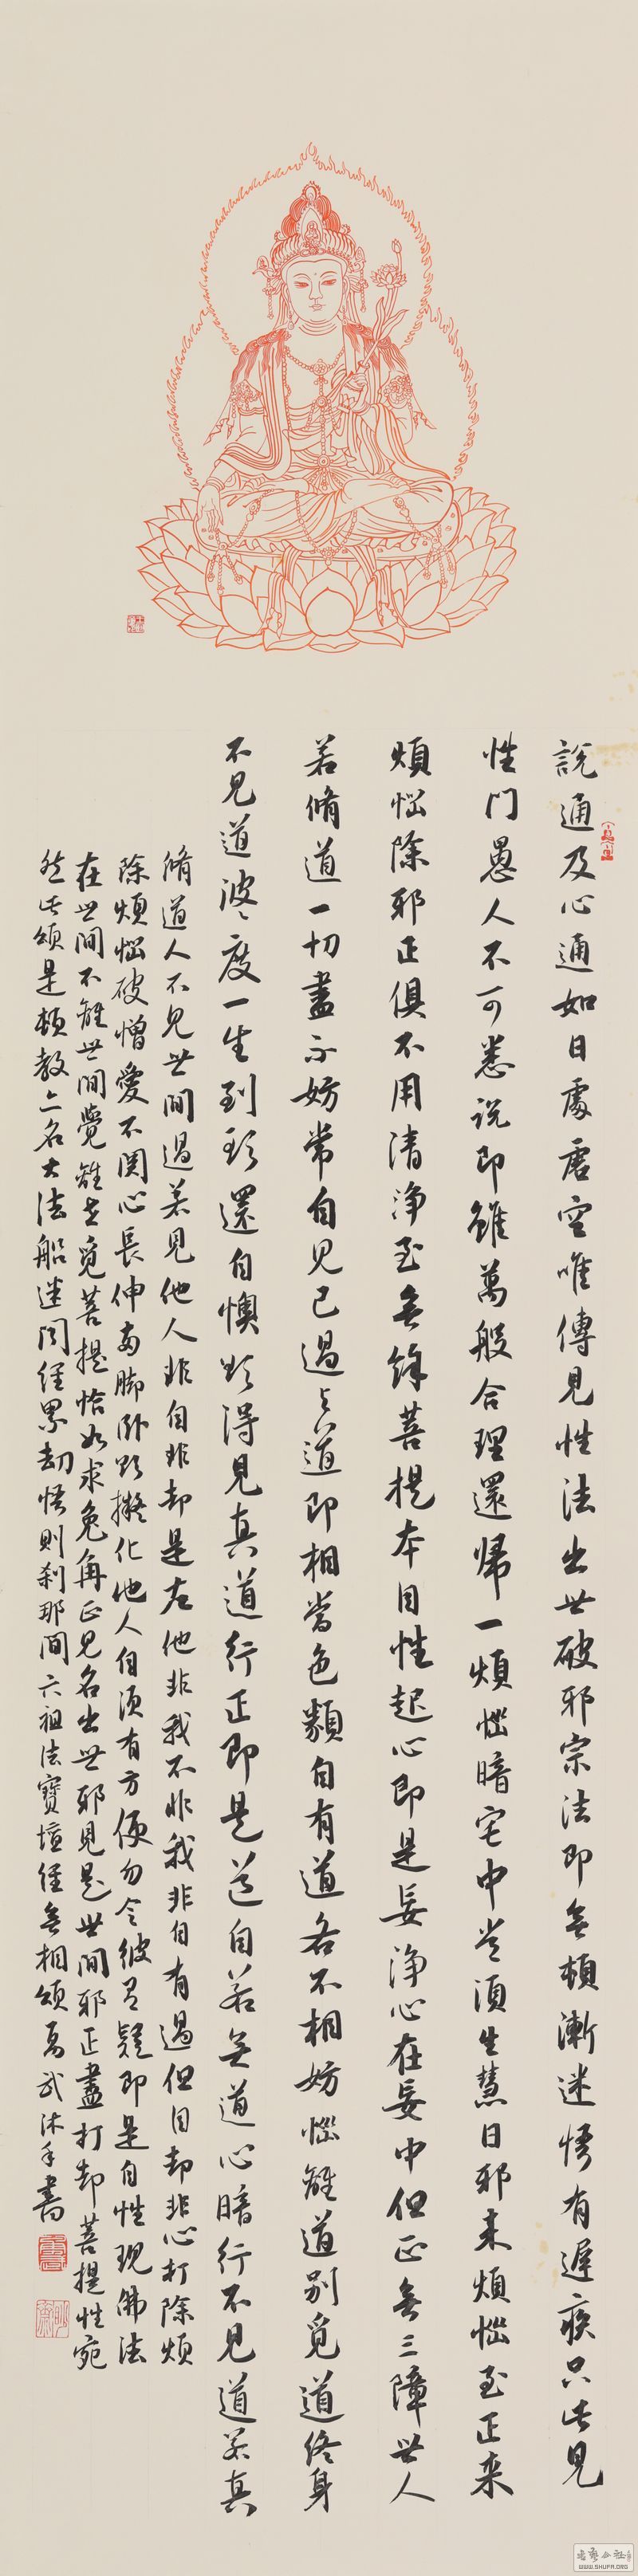 說通及心通如日處虛空唯傳見性法出世破邪宗法即無頓漸迷悟有遲疾只此見
性門愚人不可悉說即雖萬般合理還歸一煩惱暗宅中常須生慧日邪来煩惱至正来
煩惱除邪正俱不用清淨至無餘菩提本自性起心即是妄淨心在妄中但正無三障世人
若脩道一切盡不妨常自見己過與道即相當色類自有道各不相妨惱離道別覓道終身
不見道波〻度一生到頭還自懊欲得見真道行正即是道自若無道心暗行不見道若真
脩道人不見世間過若見他人非自非却是左他非我不非我非自有過但自却非心打除煩
除煩惱破憎愛不関心長伸兩脚卧欲擬化他人自須有方便勿令彼有疑即是自性現佛法
在世間不離世間覺離世覓菩提恰如求兔角正見名出世邪見是世間邪正盡打却菩提性宛
然此頌是頓教亦名大法船迷聞經累劫悟則剎那間六祖法寶壇經無相頌武沐手書
WWW.SHUFA.ORG